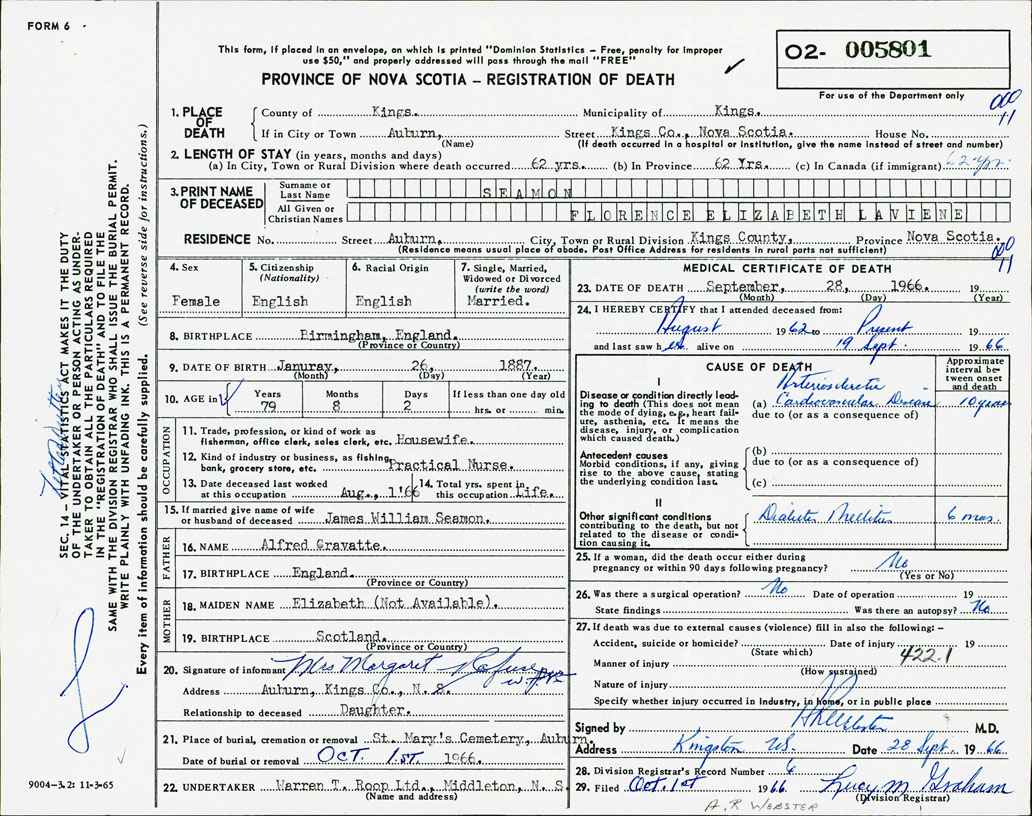 FORM 6
This form, if placed in an envelope, on which is printed "Dominion Statistics – Free, penalty for improper
use $50," and properly addressed will pass through the mail "FREE"
PROVINCE OF NOVA SCOTIA – REGISTRATION OF DEATH
O2- 005801
For use of the Department only
000
11
1. PLACE OF DEATH
County of Kings. Municipality of Kings.
If in City or Town Auburn, Street Kings Co., Nova Scotia. House No.
(Name) (If death occurred in a hospital or institution, give the name instead of street and number)
2. LENGTH OF STAY (in years, months and days)
(a) In City, Town or Rural Division where death occurred 62 yrs. (b) In Province 62 Yrs. (c) In Canada (if immigrant) 62 yrs.
3. PRINT NAME OF DECEASED
Surname or Last Name SEAMON
All Given or Christian Names FLORENCE ELIZABETH LAVIENE
RESIDENCE No. Street Auburn, City, Town or Rural Division Kings County, Province Nova Scotia.
(Residence means usual place of abode. Post Office Address for residents in rural parts not sufficient)
000
11
4. Sex
Female
5. Citizenship
(Nationality)
English
6. Racial Origin
English
7. Single, Married,
Widowed or Divorced
(write the word)
Married.
8. BIRTHPLACE Birmingham, England.
(Province or Country)
9. DATE OF BIRTH Januray, 26, 1887.
(Month) (Day) (Year)
10. AGE in Years Months Days If less than one day old
79 8 2 hrs. or min.
OCCUPATION
11. Trade, profession, or kind of work as
fisherman, office clerk, sales clerk, etc. Housewife.
12. Kind of industry or business, as fishing,
bank, grocery store, etc. Practical Nurse.
13. Date deceased last worked
at this occupation Aug., 1'66
14. Total yrs. spent in
this occupation Life.
15. If married give name of wife
or husband of deceased James William Seamon.
FATHER
16. NAME Alfred Gravatte.
17. BIRTHPLACE England.
(Province or Country)
MOTHER
18. MAIDEN NAME Elizabeth (Not Available).
19. BIRTHPLACE Scotland.
(Province or Country)
20. Signature of informant Mrs Margaret Rafuse
Address Auburn, Kings Co., N. S.
Relationship to deceased Daughter.
21. Place of burial, cremation or removal St. Mary's Cemetery, Auburn.
Date of burial or removal OCT. 1.ST. 1966.
22. UNDERTAKER Warren T. Roop Ltd., Middleton, N. S.
(Name and address)
MEDICAL CERTIFICATE OF DEATH
23. DATE OF DEATH September, 28, 1966. 19
(Month) (Day) (Year)
24. I HEREBY CERTIFY that I attended deceased from:
August 1962 to Present 19
and last saw her alive on 19 Sept. 1966
CAUSE OF DEATH
Approximate interval between onset and death
I
Disease or condition directly leading to death (This does not mean the mode of dying, e.g., heart failure, asthenia, etc. It means the disease, injury, or complication which caused death.)
Arteriosclerotic
(a) Cardiovascular Disease 10 years
due to (or as a consequence of)
Antecedent causes
Morbid conditions, if any, giving rise to the above cause, stating the underlying condition last.
(b)
due to (or as a consequence of)
(c)
II
Other significant conditions
contributing to the death, but not related to the disease or condition causing it.
Diabetes Mellitus 6 mos.
25. If a woman, did the death occur either during
pregnancy or within 90 days following pregnancy? No
(Yes or No)
26. Was there a surgical operation? No Date of operation 19
State findings Was there an autopsy? No
27. If death was due to external causes (violence) fill in also the following:–
Accident, suicide or homicide? Date of injury 19
(State which) 422.1
Manner of injury
(How sustained)
Nature of injury
Specify whether injury occurred in industry, in home, or in public place
Signed by M.D.
Address Kingston NS. Date 28 Sept. 1966
28. Division Registrar's Record Number 6
29. Filed Oct. 1st 1966 Lucy M Graham
(Division Registrar)
A.R WEBSTER
SEC. 14 – VITAL STATISTICS ACT MAKES IT THE DUTY
OF THE UNDERTAKER OR PERSON ACTING AS UNDER-
TAKER TO OBTAIN ALL THE PARTICULARS REQUIRED
IN THE "REGISTRATION OF DEATH" AND TO FILE THE
SAME WITH THE DIVISION REGISTRAR WHO SHALL ISSUE THE BURIAL PERMIT.
WRITE PLAINLY WITH UNFADING INK. THIS IS A PERMANENT RECORD.
Every item of information should be carefully supplied. (See reverse side for instructions.)
9004-3.2: 11-3-65